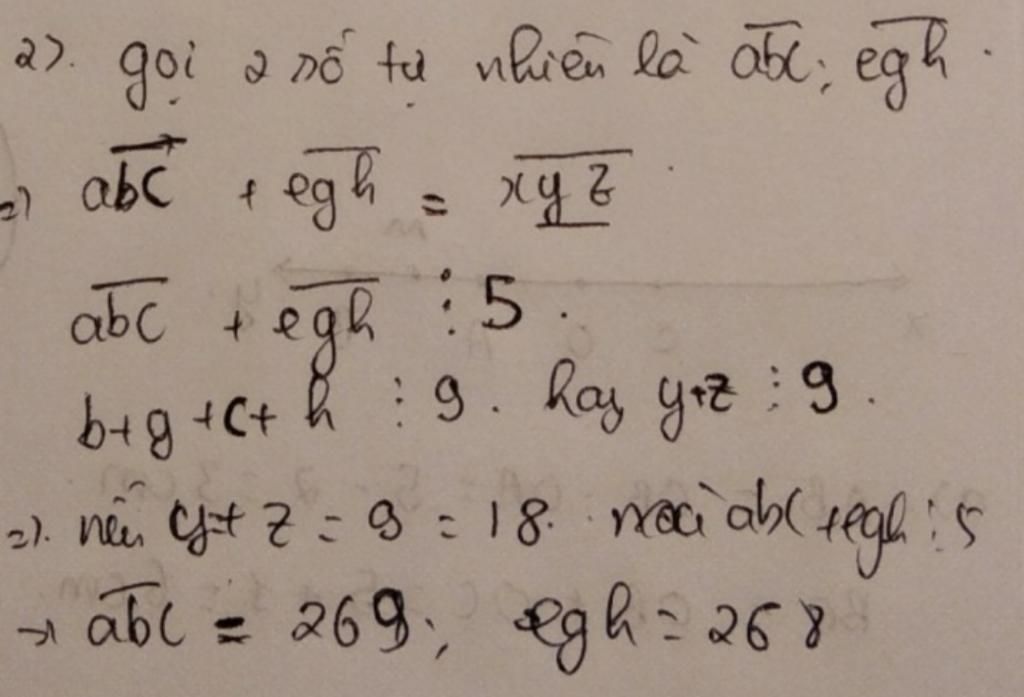 2). gọi 2 số tự nhiên là abc; egh.
=) abc + egh = xyz
abc + egh ⋮ 5.
b+g+c+h ⋮ 9. hay y+z ⋮ 9.
=). nếu y+z = 9 = 18. mà abc+egh ⋮ 5
→ abc = 269; egh = 268